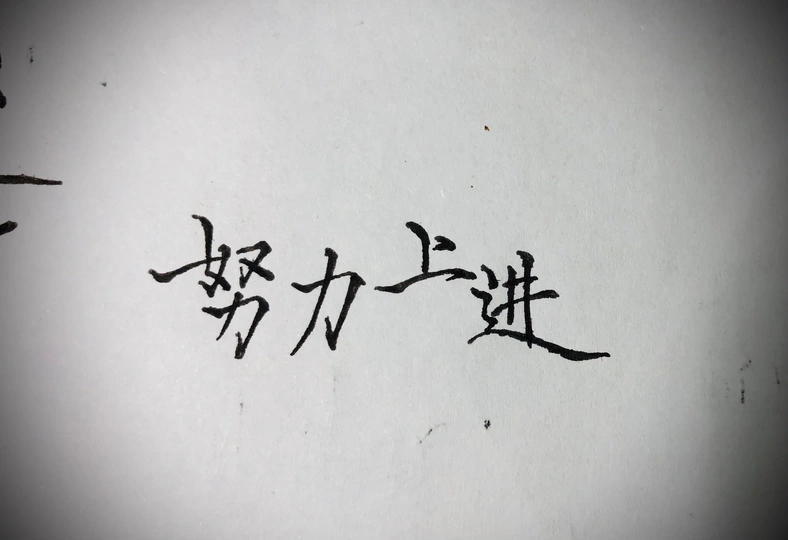 努力上进